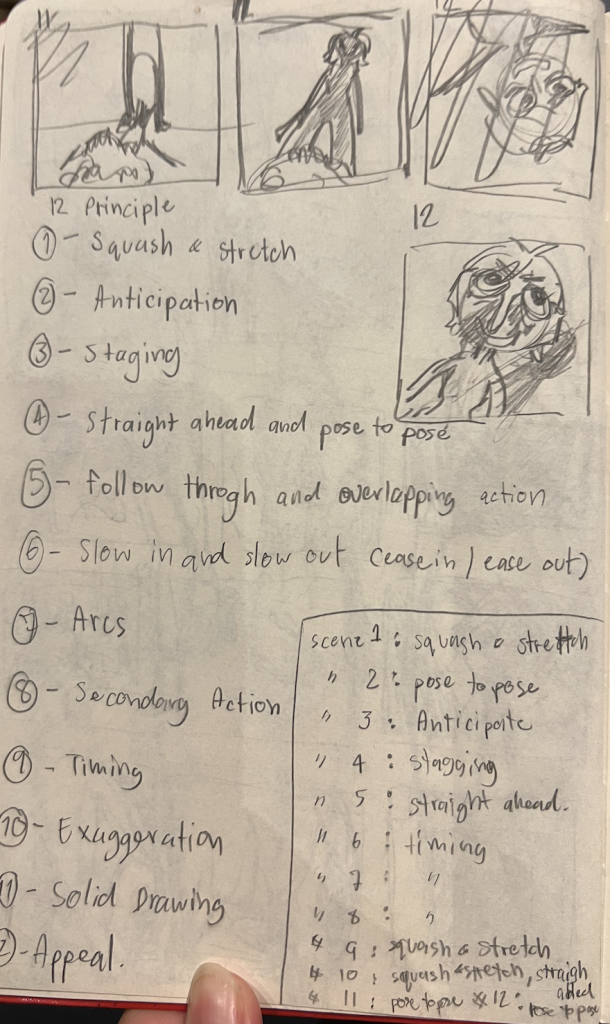 11
11
12
12 Principle
12
① - Squash & stretch
② - Anticipation
③ - Staging
④ - Straight ahead and pose to pose
⑤ - follow throgh and overlapping action
⑥ - Slow in and slow out (easein / ease out)
⑦ - Arcs
⑧ - Secondary Action
⑨ - Timing
⑩ - Exaggeration
⑪ - Solid Drawing
- Appeal.
scene 1 : squash & stretch
" 2 : pose to pose
" 3 : Anticipate
" 4 : stagging
" 5 : straight ahead.
" 6 : timing
" 7 : "
" 8 : "
" 9 : squash & stretch
" 10 : squash & stretch, straigh
ahed
" 11 : pose to pose & 12 : pose to pose